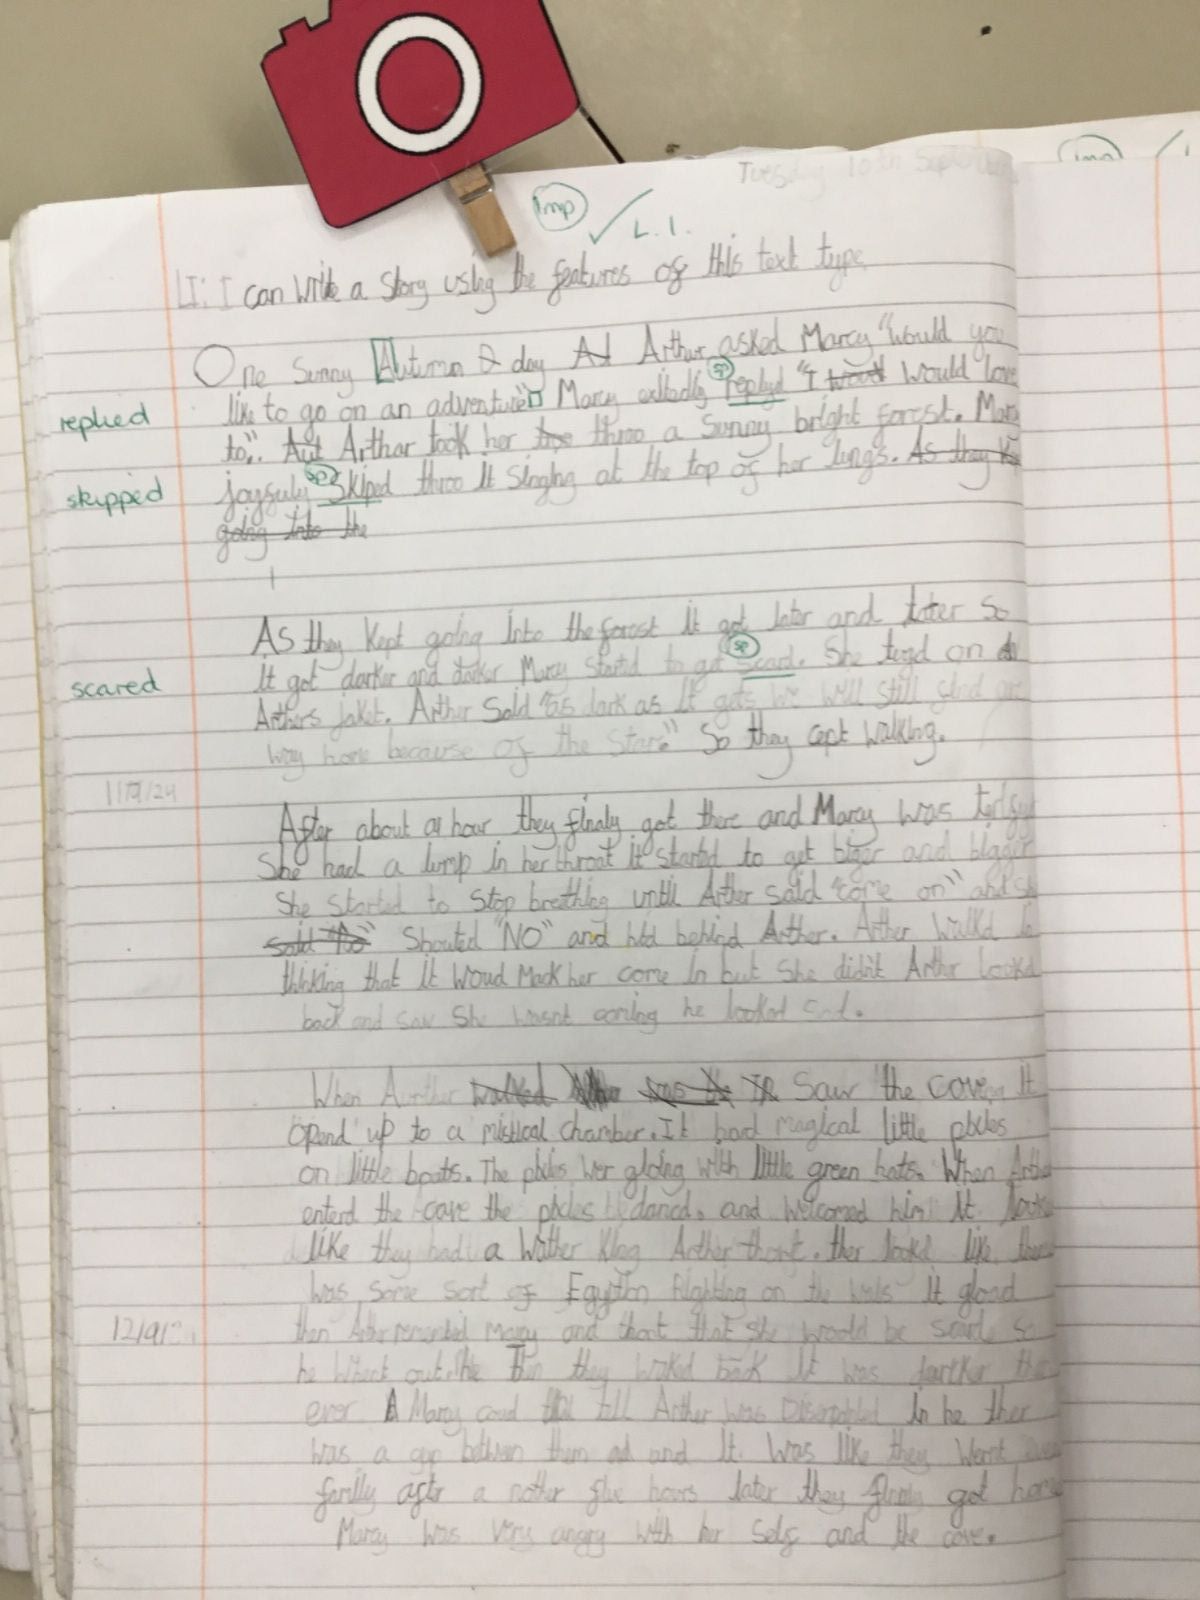 Tuesday 10th September
imp
L.I.
LI: I can write a story using the features of this text type
One Sunny Autumn day Arthur asked Marcy "would you
like to go on an adventure" Marcy exitedly replyd "I would love
sp
replied
to". Arthar took her throo a Sunny bright forest. Marcy
joyfuly skiped throo it singing at the top of her lungs. As they
sp
skipped
going into the
As they kept going into the forest it got later and later So
It got darker and darker Marcy startid to get scard. She tugd on
sp
scared
Arthers jaket. Arther said "as dark as it gets we will still find are
way home because of the Stars" So they cept walking.
11/9/24
After about a hour they finaly got there and Marcy was
She had a lump in her throat it started to get biger and bigger
She started to stop breathing until Arther said "come on" and she
said "No" Shouted "NO" and hid behind Arther. Arther walkd in
thinking that it woud mack her come in but She didn't Arther lookd
back and saw She wasnt coming he looked sad.
When Arther walked was the Saw the cave It
opend up to a mistical chamber. It had magical little pixies
on little boats. The pixies wer gloing with little green hats. When Arther
enterd the cave the pixies danced. and welcomed him It looked
like they had a Wather King Arther thort. ther lookd like there
was some sort of Egyption Righting on the It glowd
12/9/
then Arther rememberd Marcy and thort that she would be scard so
he whent out. they walked back It was darcker then
ever Marcy coud tell Arther was ther
was a gap between them and It was like they wernt
after a nother five hours later they finaly got home
Marcy was very angry with her self and the cave.